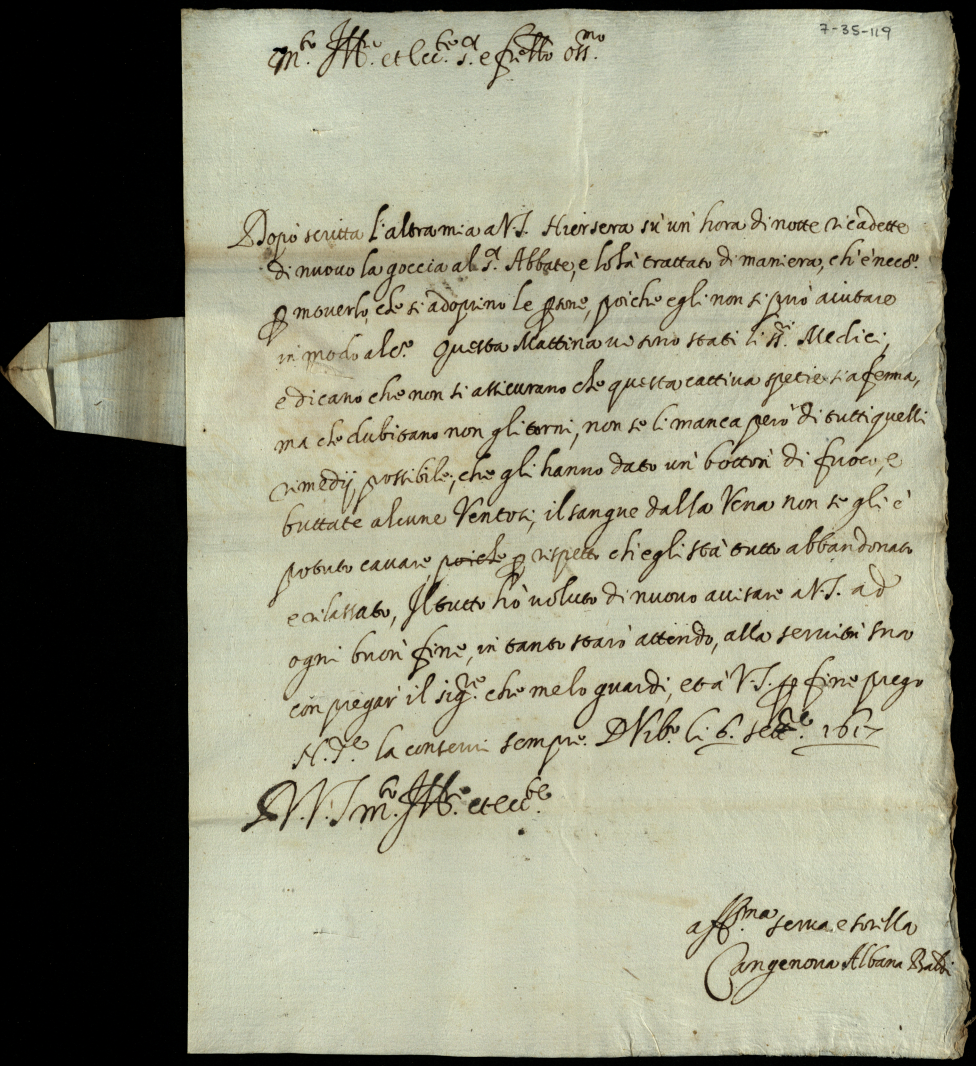 7-35-119
m.to Ill.re et ecc.te s.r e fr̃ello oss.mo
Dopò scritta l'altra mia a V.S. Hiersera sù un' hora di notte ricadette
di nuovo la goccia al S.r Abbate, e lo hà trattato di maniera, ch'è nec.o
ꝑ moverlo, che si adoprino le ꝑsone, poiche egli non si può aiutare
in modo alc.o Questa Mattina ve sono stati li ss.ri Medici,
e dicano che non si assicurano che questa cattiva spetie sia ferma,
ma che dubitano non gli torni, non se li manca però di tutti quelli
rimedij possibile, che gli hanno dato un' botton' di fuoco, e
buttate alcune Ventosi, il sangue dalla Vena non se gli è
potuto cavare, poiche ꝑ rispetto ch'egli stà tutto abbandonato
e rilassato, Il tutto hò voluto di nuovo avisare a V.S. ad
ogni buon' fine, in tanto starò attendo, alla servitù sua
con pregar' il sig.re che melo guardi, et à V.S. ꝑ fine prego
N.S.re la conservi sempre. D'Urb.o li 6. sett.re 1617
D V.S. m.to Ill.re et ecc.te
aff.ma serva, e sorella
Cangenova Albana Baldi